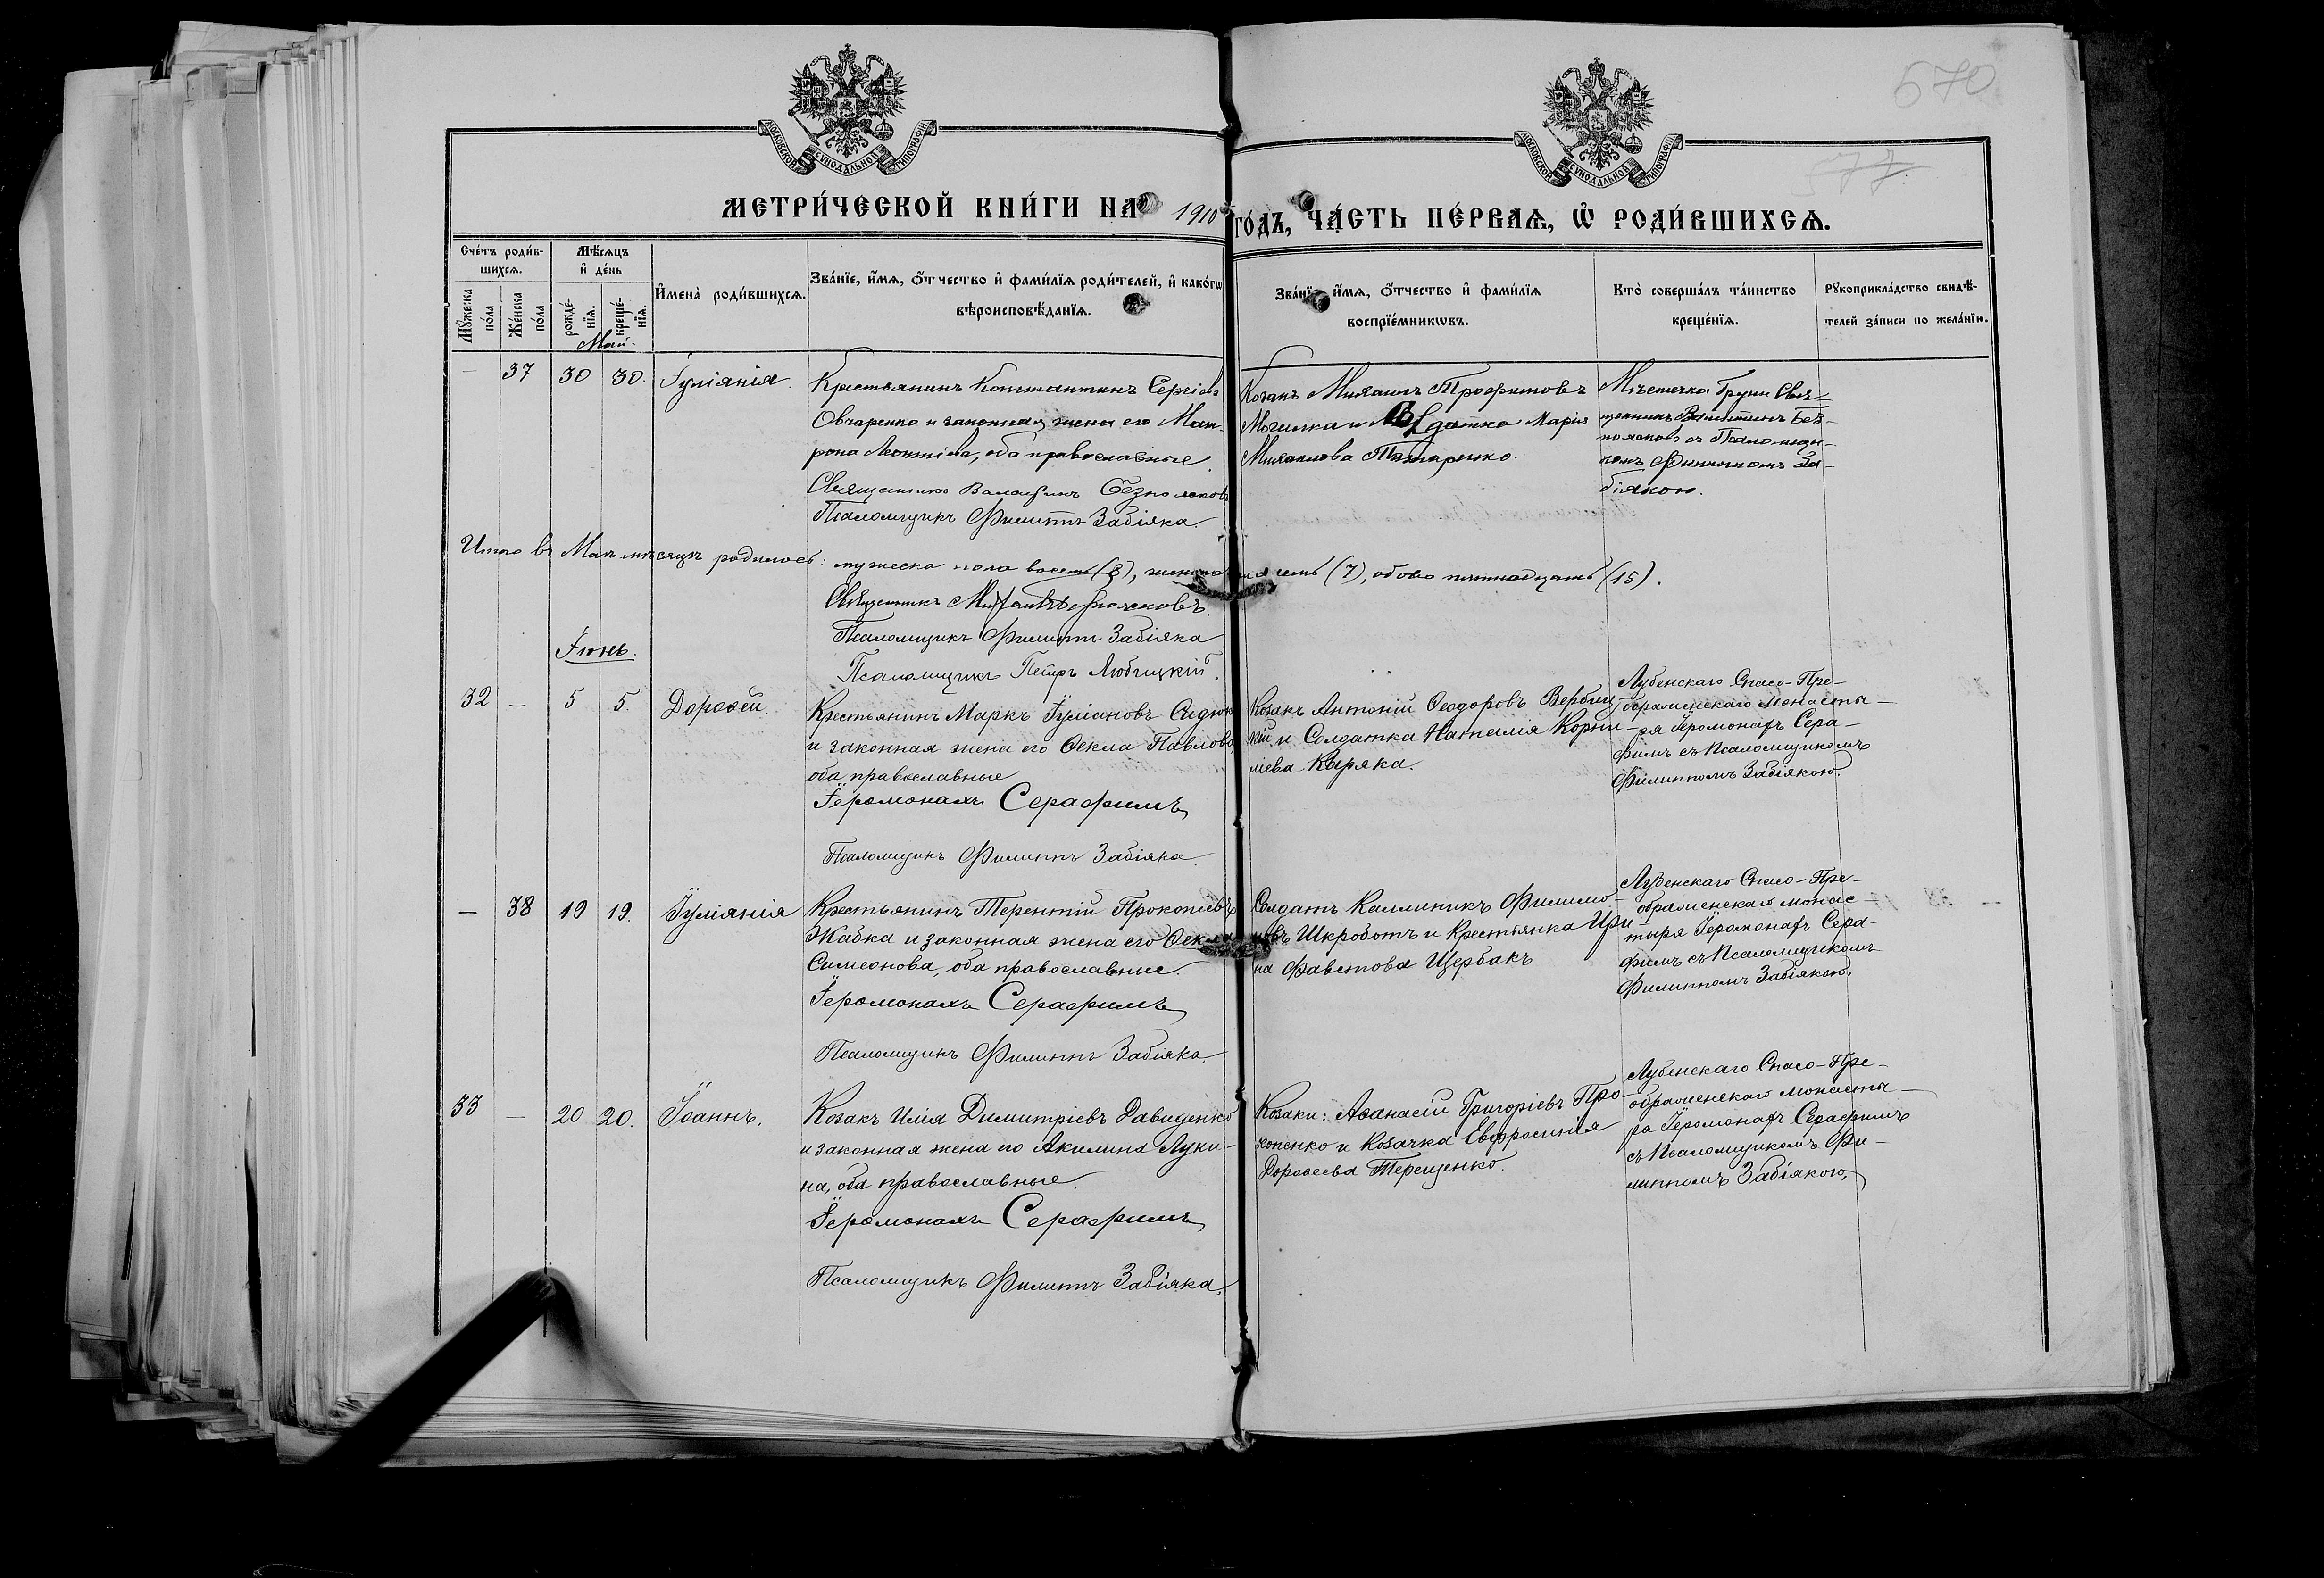 570
577
МОСКОВСКОЙ СѴНОДАЛЬНОЙ ТИПОГРАФІИ
МОСКОВСКОЙ СѴНОДАЛЬНОЙ ТИПОГРАФІИ
МЕТРИ́ЧЕСКОЙ КНИ́ГИ НА 1910 ГО́ДЪ, ЧА́СТЬ ПЕ́РВАѦ, Ѡ҆ РОДИ́ВШИХСѦ.
Сче́тъ роди́в-
шихсѧ.
Мѹ́жеска по́ла
Же́нска по́ла
Мѣ́сѧцъ
и҆ де́нь
рожде́-
нїѧ.
креще́-
нїѧ.
И҆мена̀ роди́вшихсѧ.
Зва́нїе, и҆́мѧ, ѻ҆́тчество и҆ фами́лїѧ роди́телей, и҆ како́гѡ
вѣроисповѣ́данїѧ.
Зва́нїе, и҆́мѧ, ѻ҆́тчество и҆ фами́лїѧ
воспрїе́мникѡвъ.
Кто̀ соверша́лъ та́инство
креще́нїѧ.
Рѹкоприкла́дство свидѣ́-
телей за́писи по жела́нїю.
Май
— 37 30 30. Іуліанія.
Крестьянинъ Константинъ Сергіевъ
Овчаренко и законная жена его Мат-
рона Леонтіева, оба православные.
Священникъ Валентинъ Безпоясковъ
Псаломщикъ Филиппъ Забіяка.
Козакъ Михаилъ Трофимовъ
Могилка и Солдатка Марія
Михаилова Татаренко.
Мѣстечка Груни Свя-
щенникъ Валентинъ Без-
поясковъ съ Псаломщи-
комъ Филиппомъ За-
біякою.
Итого въ Маѣ мѣсяцѣ родилось: мужеска пола восемь (8), женска пола семь (7), обоего пятнадцать (15).
Священникъ Безпоясковъ.
Псаломщикъ Филиппъ Забіяка
Псаломщикъ Петръ Любицкій.
Іюнь.
32 — 5 5. Дороѳей.
Крестьянинъ Маркъ Іуліановъ Сидюк
и законная жена его Ѳекла Павлова,
оба православные
Іеромонахъ Серафимъ
Псаломщикъ Филиппъ Забіяка.
Козакъ Антоній Ѳеодоровъ Вербиц-
кій и Солдатка Наталія Корни-
ліева Кыряка.
Лубенскаго Спасо-Пре-
ображенскаго Монасты-
ря Іеромонахъ Сера-
фимъ съ Псаломщикомъ
Филиппомъ Забіякою.
— 38 19 19. Іуліанія
Крестьянинъ Терентій Прокопіевъ
Жабка и законная жена его Ѳекла
Симеонова, оба православные.
Іеромонахъ Серафимъ
Псаломщикъ Филиппъ Забіяка.
Солдатъ Каллиникъ Филимо-
новъ Шкроботъ и Крестьянка Ири-
на Фавстова Щербакъ
Лубенскаго Спасо-Пре-
ображенскаго монас-
тыря Іеромонахъ Сера-
фимъ съ Псаломщикомъ
Филиппомъ Забіякою.
33 — 20 20. Іоаннъ.
Козакъ Илія Димитріевъ Давиденко
и законная жена его Акилина Луки-
на, оба православные.
Іеромонахъ Серафимъ
Псаломщикъ Филиппъ Забіяка.
Козаки: Аѳанасій Григоріевъ Про-
копенко и Козачка Евфросинія
Дороѳеева Терещенко.
Лубенскаго Спасо-Пре-
ображенскаго монасты-
ря Іеромонахъ Серафимъ
съ Псаломщикомъ Фи-
липпомъ Забіякою.